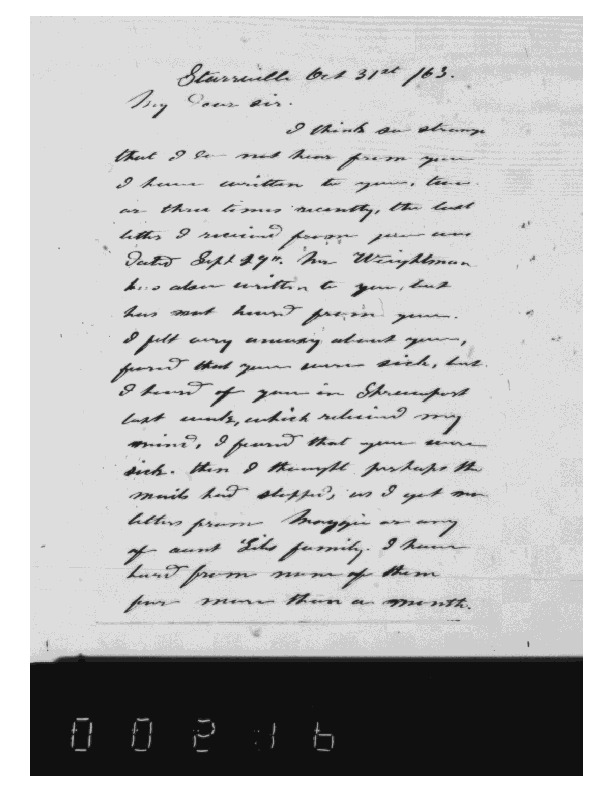 Starrville Oct 31st /63.
My Dear sir.
I think so strange
that I do not hear from you
I have written to you, two
or three times recently, the last
letter I received from you was
Dated Sept 29th. Mr Weightman
has also written to you, but
has not heard from you.
I felt very uneasy about you,
feared that you were sick, but
I heard of you in Shreveport
last week, which relieved my
mind, I feared that you were
sick. then I thought perhaps the
mails had stopped, as I get no
letters from Maggie or any
of aunt family. I have
heard from none of them
for more than a month.
00216